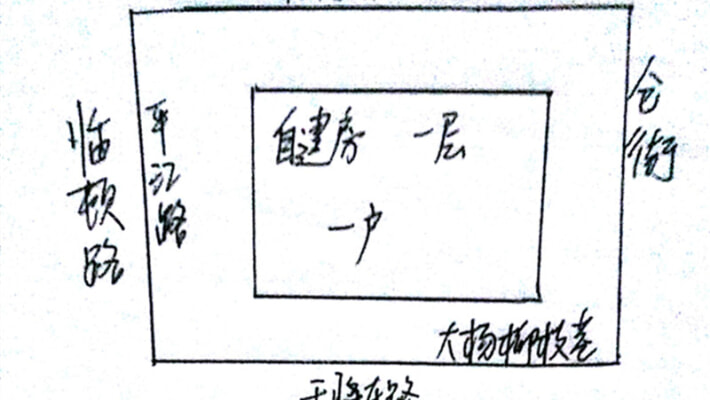 临顿路
平江路
自建房 一层
一户
仓街
大杨柳枝巷
干将东路